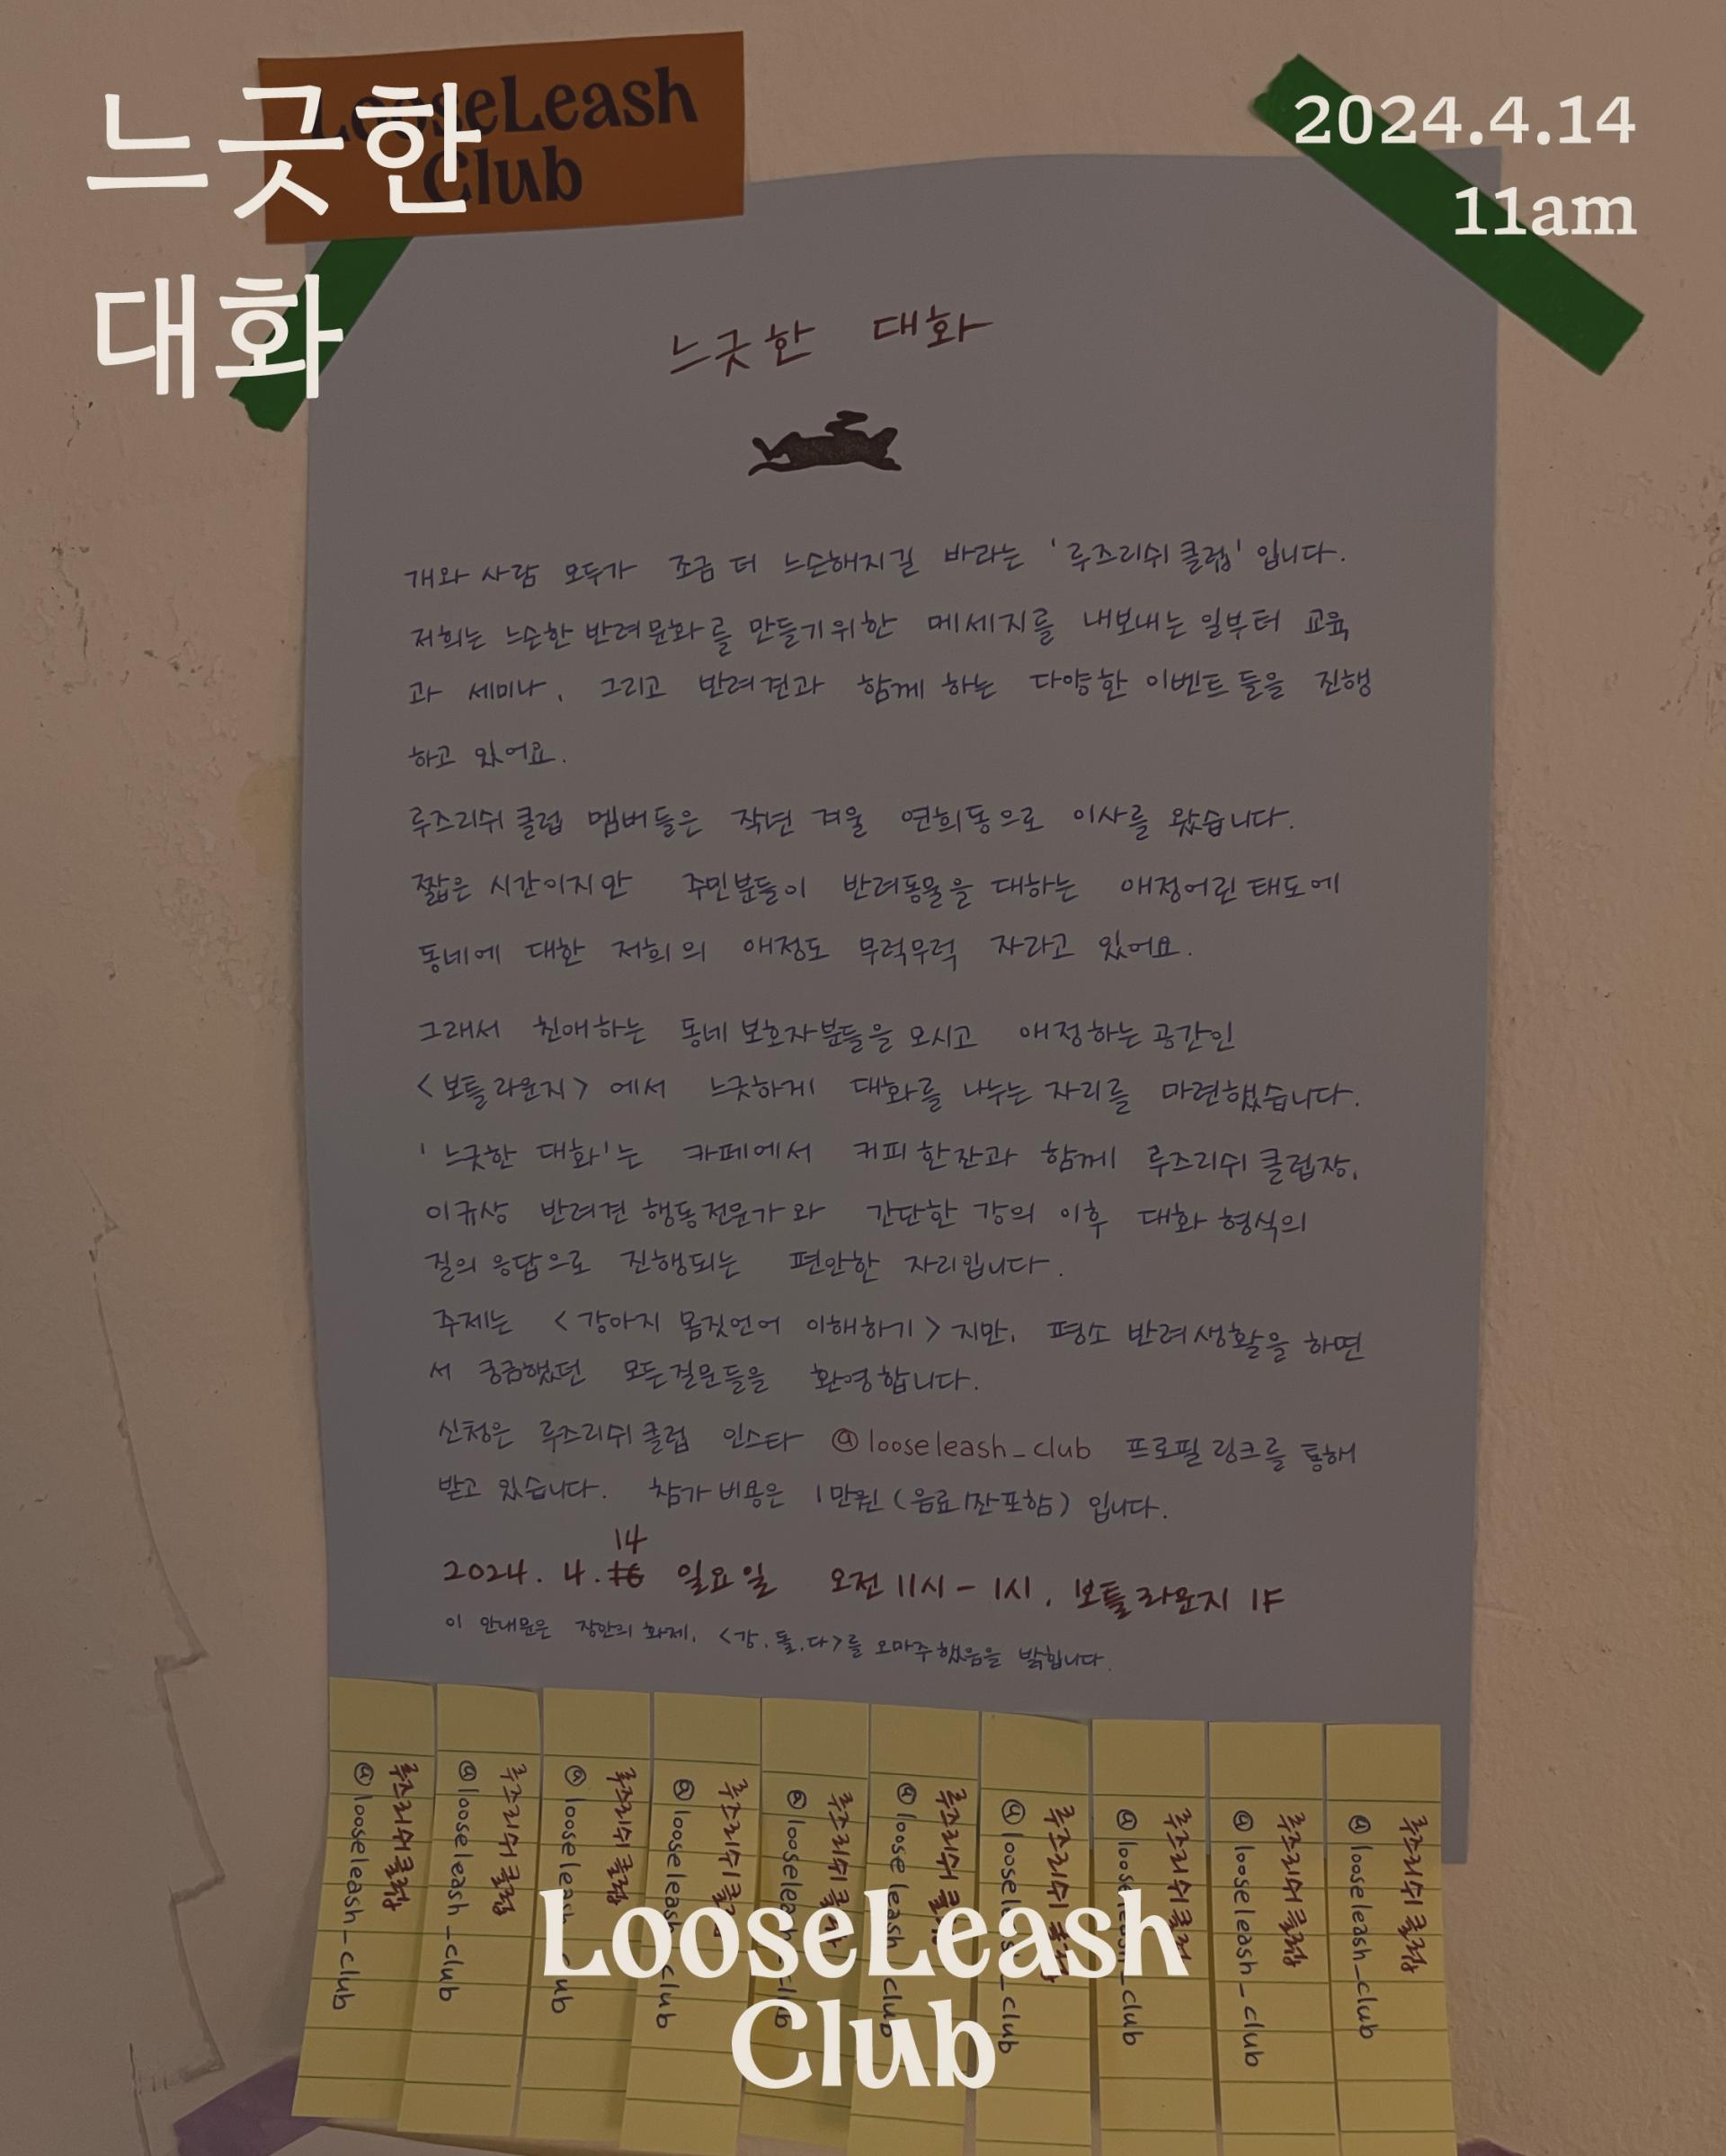 느긋한
대화
2024.4.14
11am
LooseLeash
Club
느긋한 대화
개와 사람 모두가 조금 더 느슨해지길 바라는 '루즈리쉬 클럽' 입니다.
저희는 느슨한 반려문화를 만들기위한 메세지를 내보내는 일부터 교육
과 세미나, 그리고 반려견과 함께 하는 다양한 이벤트들을 진행
하고 있어요.
루즈리쉬 클럽 멤버들은 작년 겨울 연희동으로 이사를 왔습니다.
짧은 시간이지만 주민분들이 반려동물을 대하는 애정어린 태도에
동네에 대한 저희의 애정도 무럭무럭 자라고 있어요.
그래서 친애하는 동네 보호자분들을 모시고 애정하는 공간인
<보틀라운지> 에서 느긋하게 대화를 나누는 자리를 마련했습니다.
'느긋한 대화'는 카페에서 커피 한잔과 함께 루즈리쉬 클럽장,
이규상 반려견 행동전문가와 간단한 강의 이후 대화 형식의
질의 응답으로 진행되는 편안한 자리입니다.
주제는 <강아지 몸짓언어 이해하기> 지만, 평소 반려생활을 하면
서 궁금했던 모든질문들을 환영합니다.
신청은 루즈리쉬 클럽 인스타 @looseleash_club 프로필 링크를 통해
받고 있습니다. 참가비용은 1만원 (음료1잔포함) 입니다.
14
2024. 4. 16 일요일 오전 11시 - 1시, 보틀라운지 1F
이 안내문은 장안의 화제, <강.돌.다>를 오마주했음을 밝힙니다.
루즈리쉬클럽
@looseleash_club
루즈리쉬클럽
@looseleash_club
루즈리쉬클럽
@looseleash_club
루즈리쉬클럽
@looseleash_club
루즈리쉬클럽
@looseleash_club
루즈리쉬클럽
@looseleash_club
루즈리쉬클럽
@looseleash_club
루즈리쉬클럽
@looseleash_club
루즈리쉬클럽
@looseleash_club
루즈리쉬클럽
@looseleash_club
LooseLeash
Club